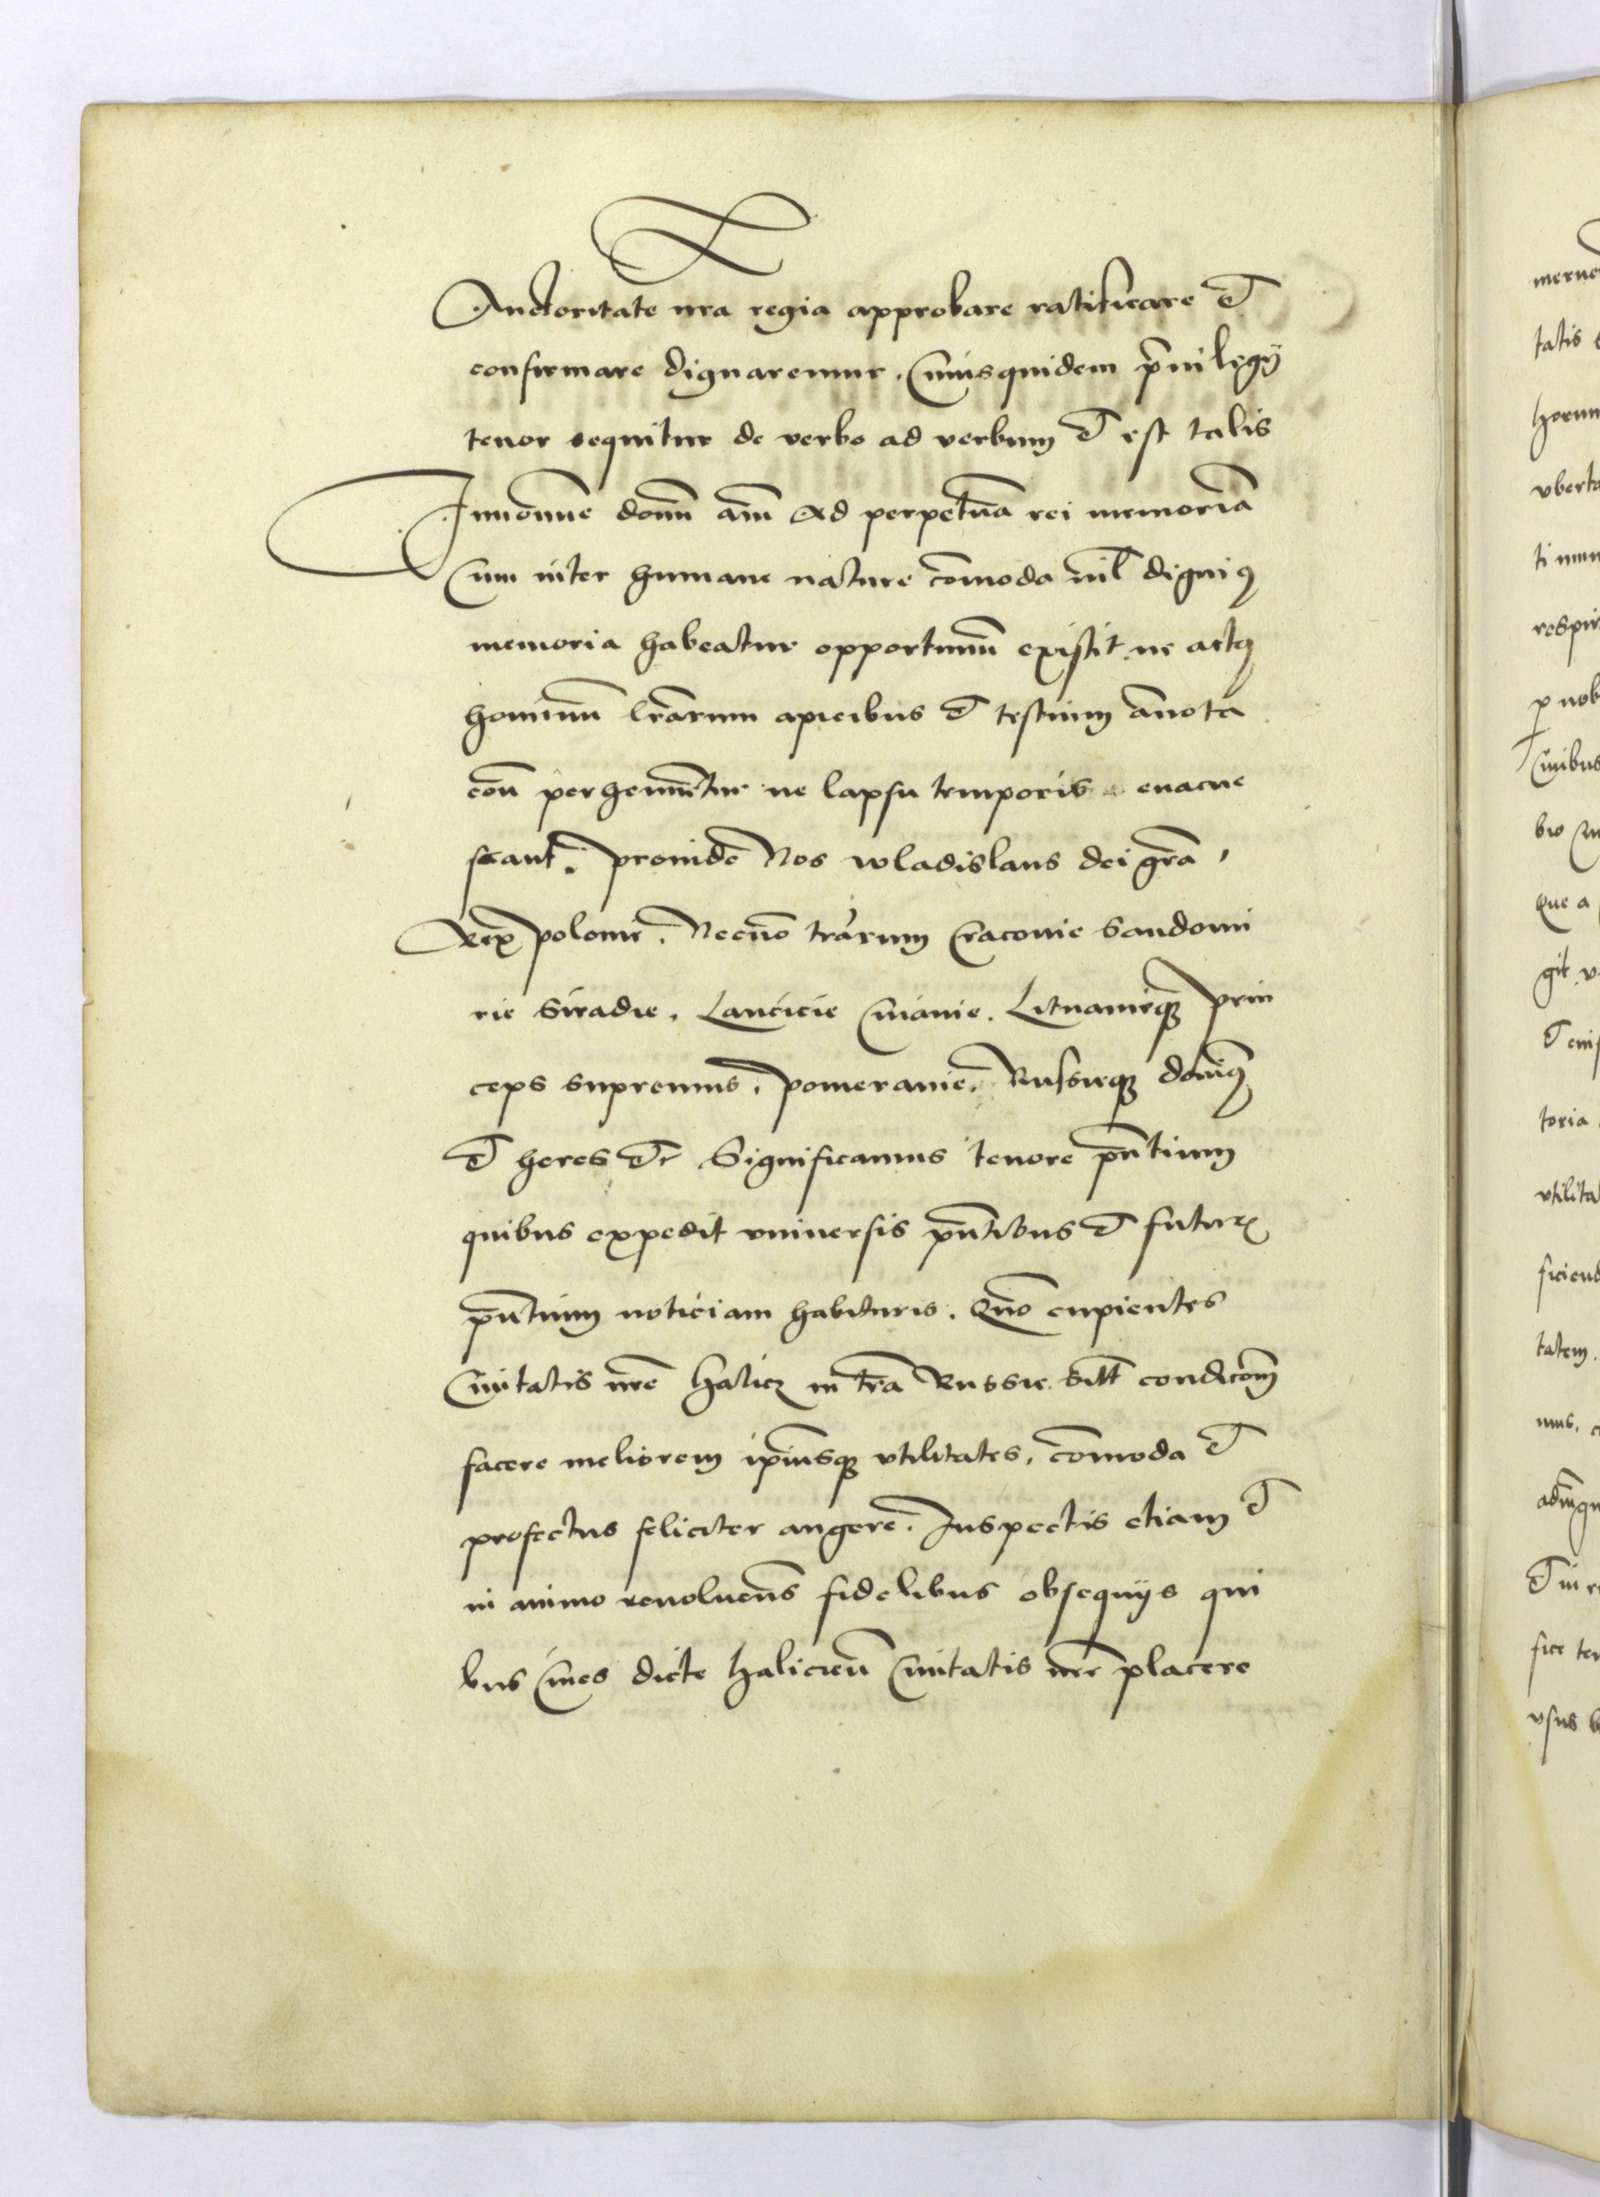 Auctoritate nra regia approbare ratificare et
confirmare dignaremur. Cuius quidem priuilegij
tenor sequitur de verbo ad verbum et est talis
In nomine domi am Ad perpetuā rei memoriā
Cum inter humane nature cōmoda nil dignius
memoria habeatur opportunū existit ne actus
hominū lrārum apicibus et testium ānota
cōn perhennētur ne lapsu temporis euacue
scant. proinde Nos wladislaus dei grā,
Rex polonie. Necnō trārum Cracouie Sandomi
rie Siradie. Lancicie Cuiauie. Lituanieqz prin
ceps supremus. pomeranie. Russieqz dominus
et heres etc Significamus tenore pn̄tium
quibus expedit vniuersis pn̄tibus et futuris
pn̄tium noticiam habituris. Quō cupientes
Ciuitatis nrē halicz in trā Russie sitē condicōm
facere meliorem ipīusqz vtilitates, cōmoda et
profectus feliciter augere. Inspectis etiam et
in animo reuoluens fidelibus obsequijs qui
bus Ciues dicte halicien̄ Ciuitatis nrē placere
meruer
tatis
horum
vberta
ti num
respir
p nob
Ciuibus
bio
Que a
git.
et cuis
toria
vtilita
ficiend
tatem.
mus.
et in r
fice ter
vsus b